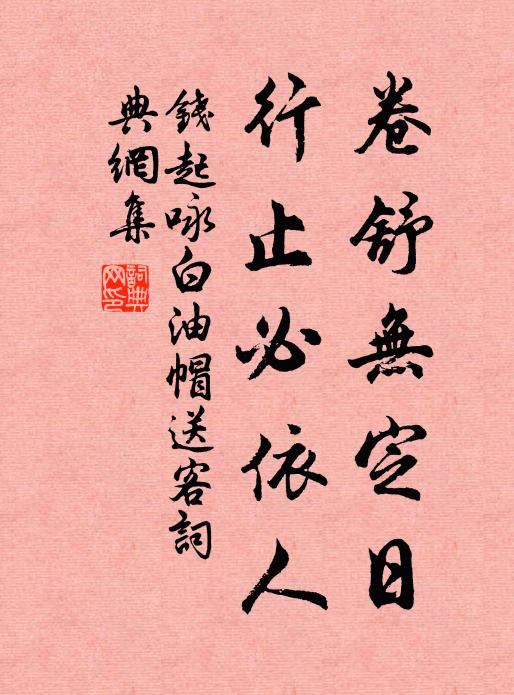 卷舒無定日
行止必依人
錢起咏白油帽送客詞
典網集
詞典網印